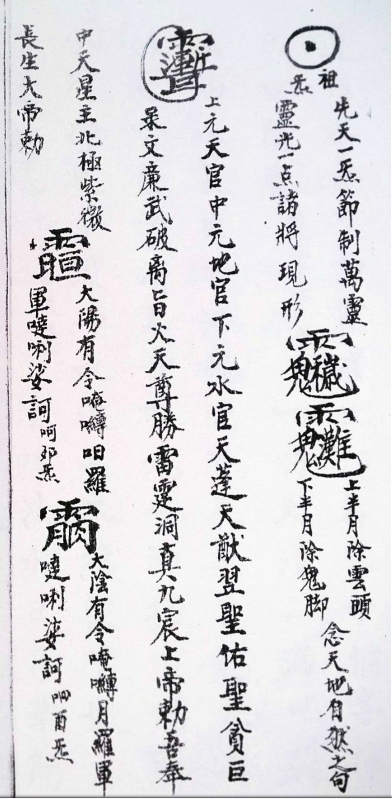 祖炁
先天一炁節制萬靈
靈光一点諸將現形
上半月除雲頭
下半月除鬼脚
念天地自然之句
上元天官中元地官下元水官天蓬天猷翌聖佑聖貪巨
彔文廉武破离旨火天尊勝雷霆洞真九宸上帝勅吾奉
中天星主北極紫微
大陽有令唵㗱呾羅
軍噠唎娑訶
大陰有令唵㗱月羅軍
噠唎娑訶
長生大帝勅